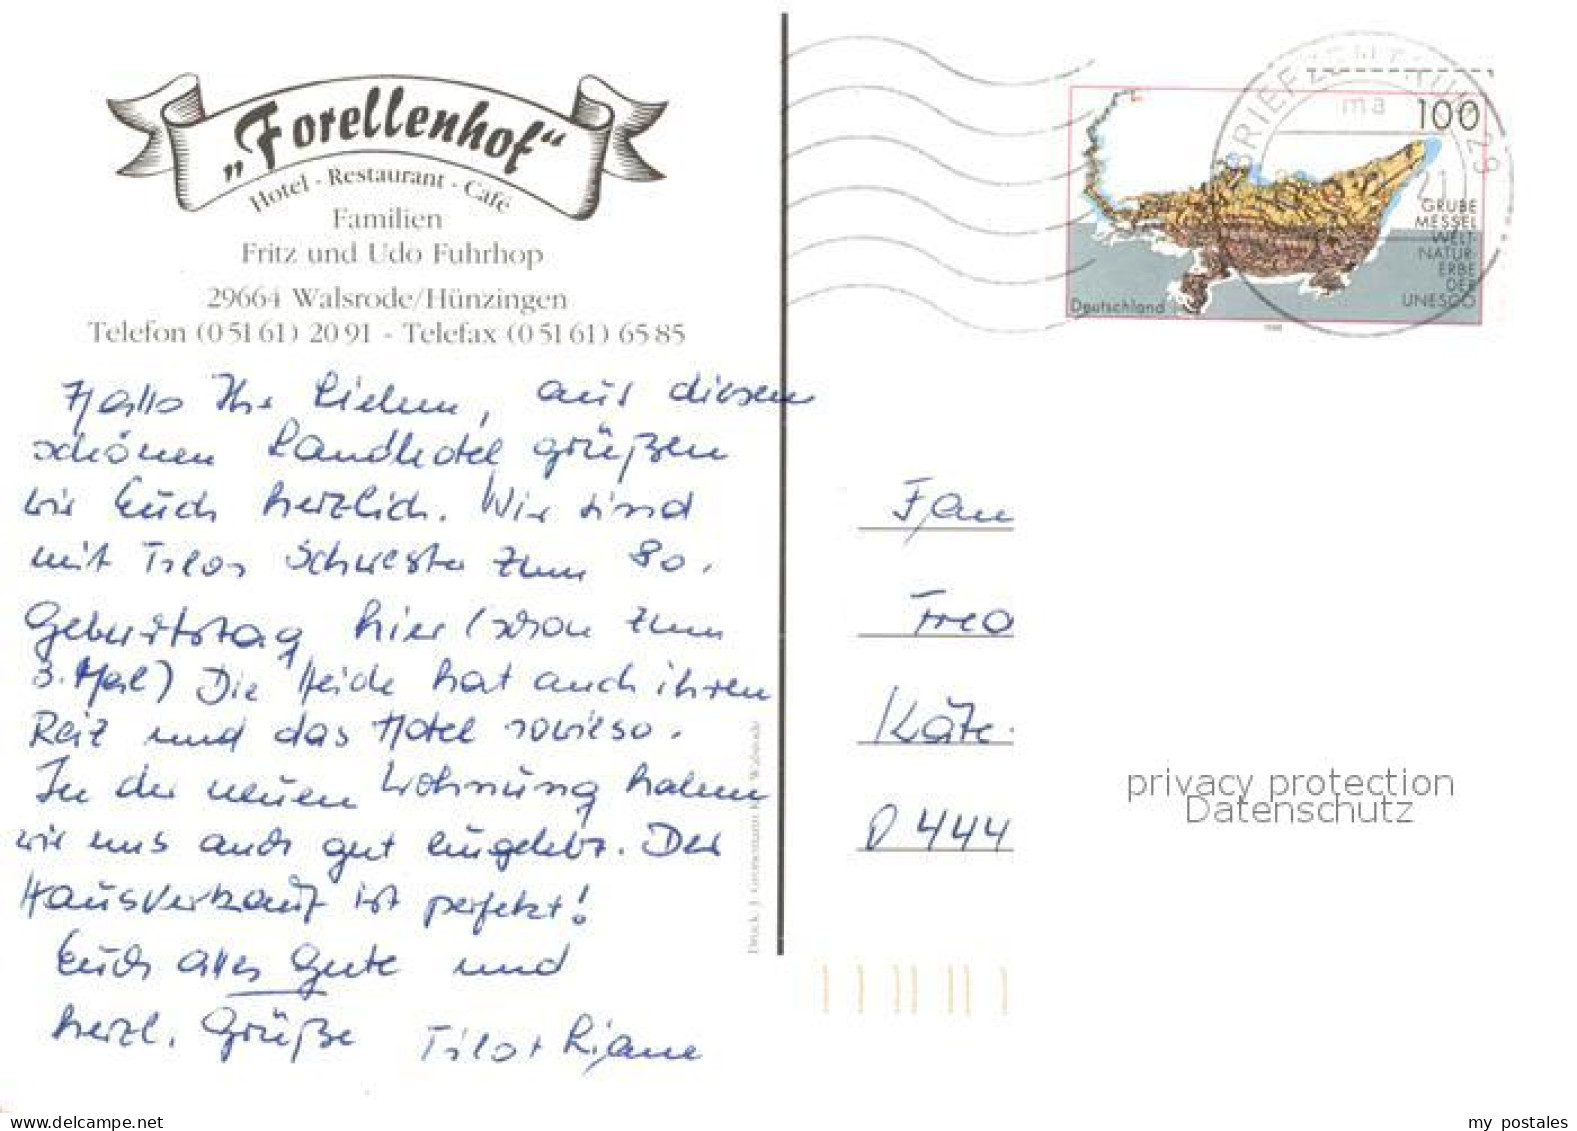 „Forellenhof“
Hotel - Restaurant - Café
Familien
Fritz und Udo Fuhrhop
29664 Walsrode/Hünzingen
Telefon (0 51 61) 20 91 - Telefax (0 51 61) 65 85
Hallo Ihr Lieben, aus diesem
schönen Landhotel grüßen
wir Euch herzlich. Wir sind
mit Tilos Schwester zum 80.
Geburtstag hier (schon zum
3. Mal) Die Heide hat auch ihren
Reiz und das Hotel sowieso.
In der neuen Wohnung haben
wir uns auch gut eingelebt. Der
Hausverkauf ist perfekt!
Euch alles Gute und
herzl. Grüße Tilo + Liane
Druck: J. Gronemann, Walsrode
BRIEFZENTRUM 29
ma
21
100
GRUBE
MESSEL
WELT-
NATUR-
ERBE
DER
UNESCO
Deutschland
1998
Fam
Fred
Käte
D 444
privacy protection
Datenschutz
www.delcampe.net
my_postales